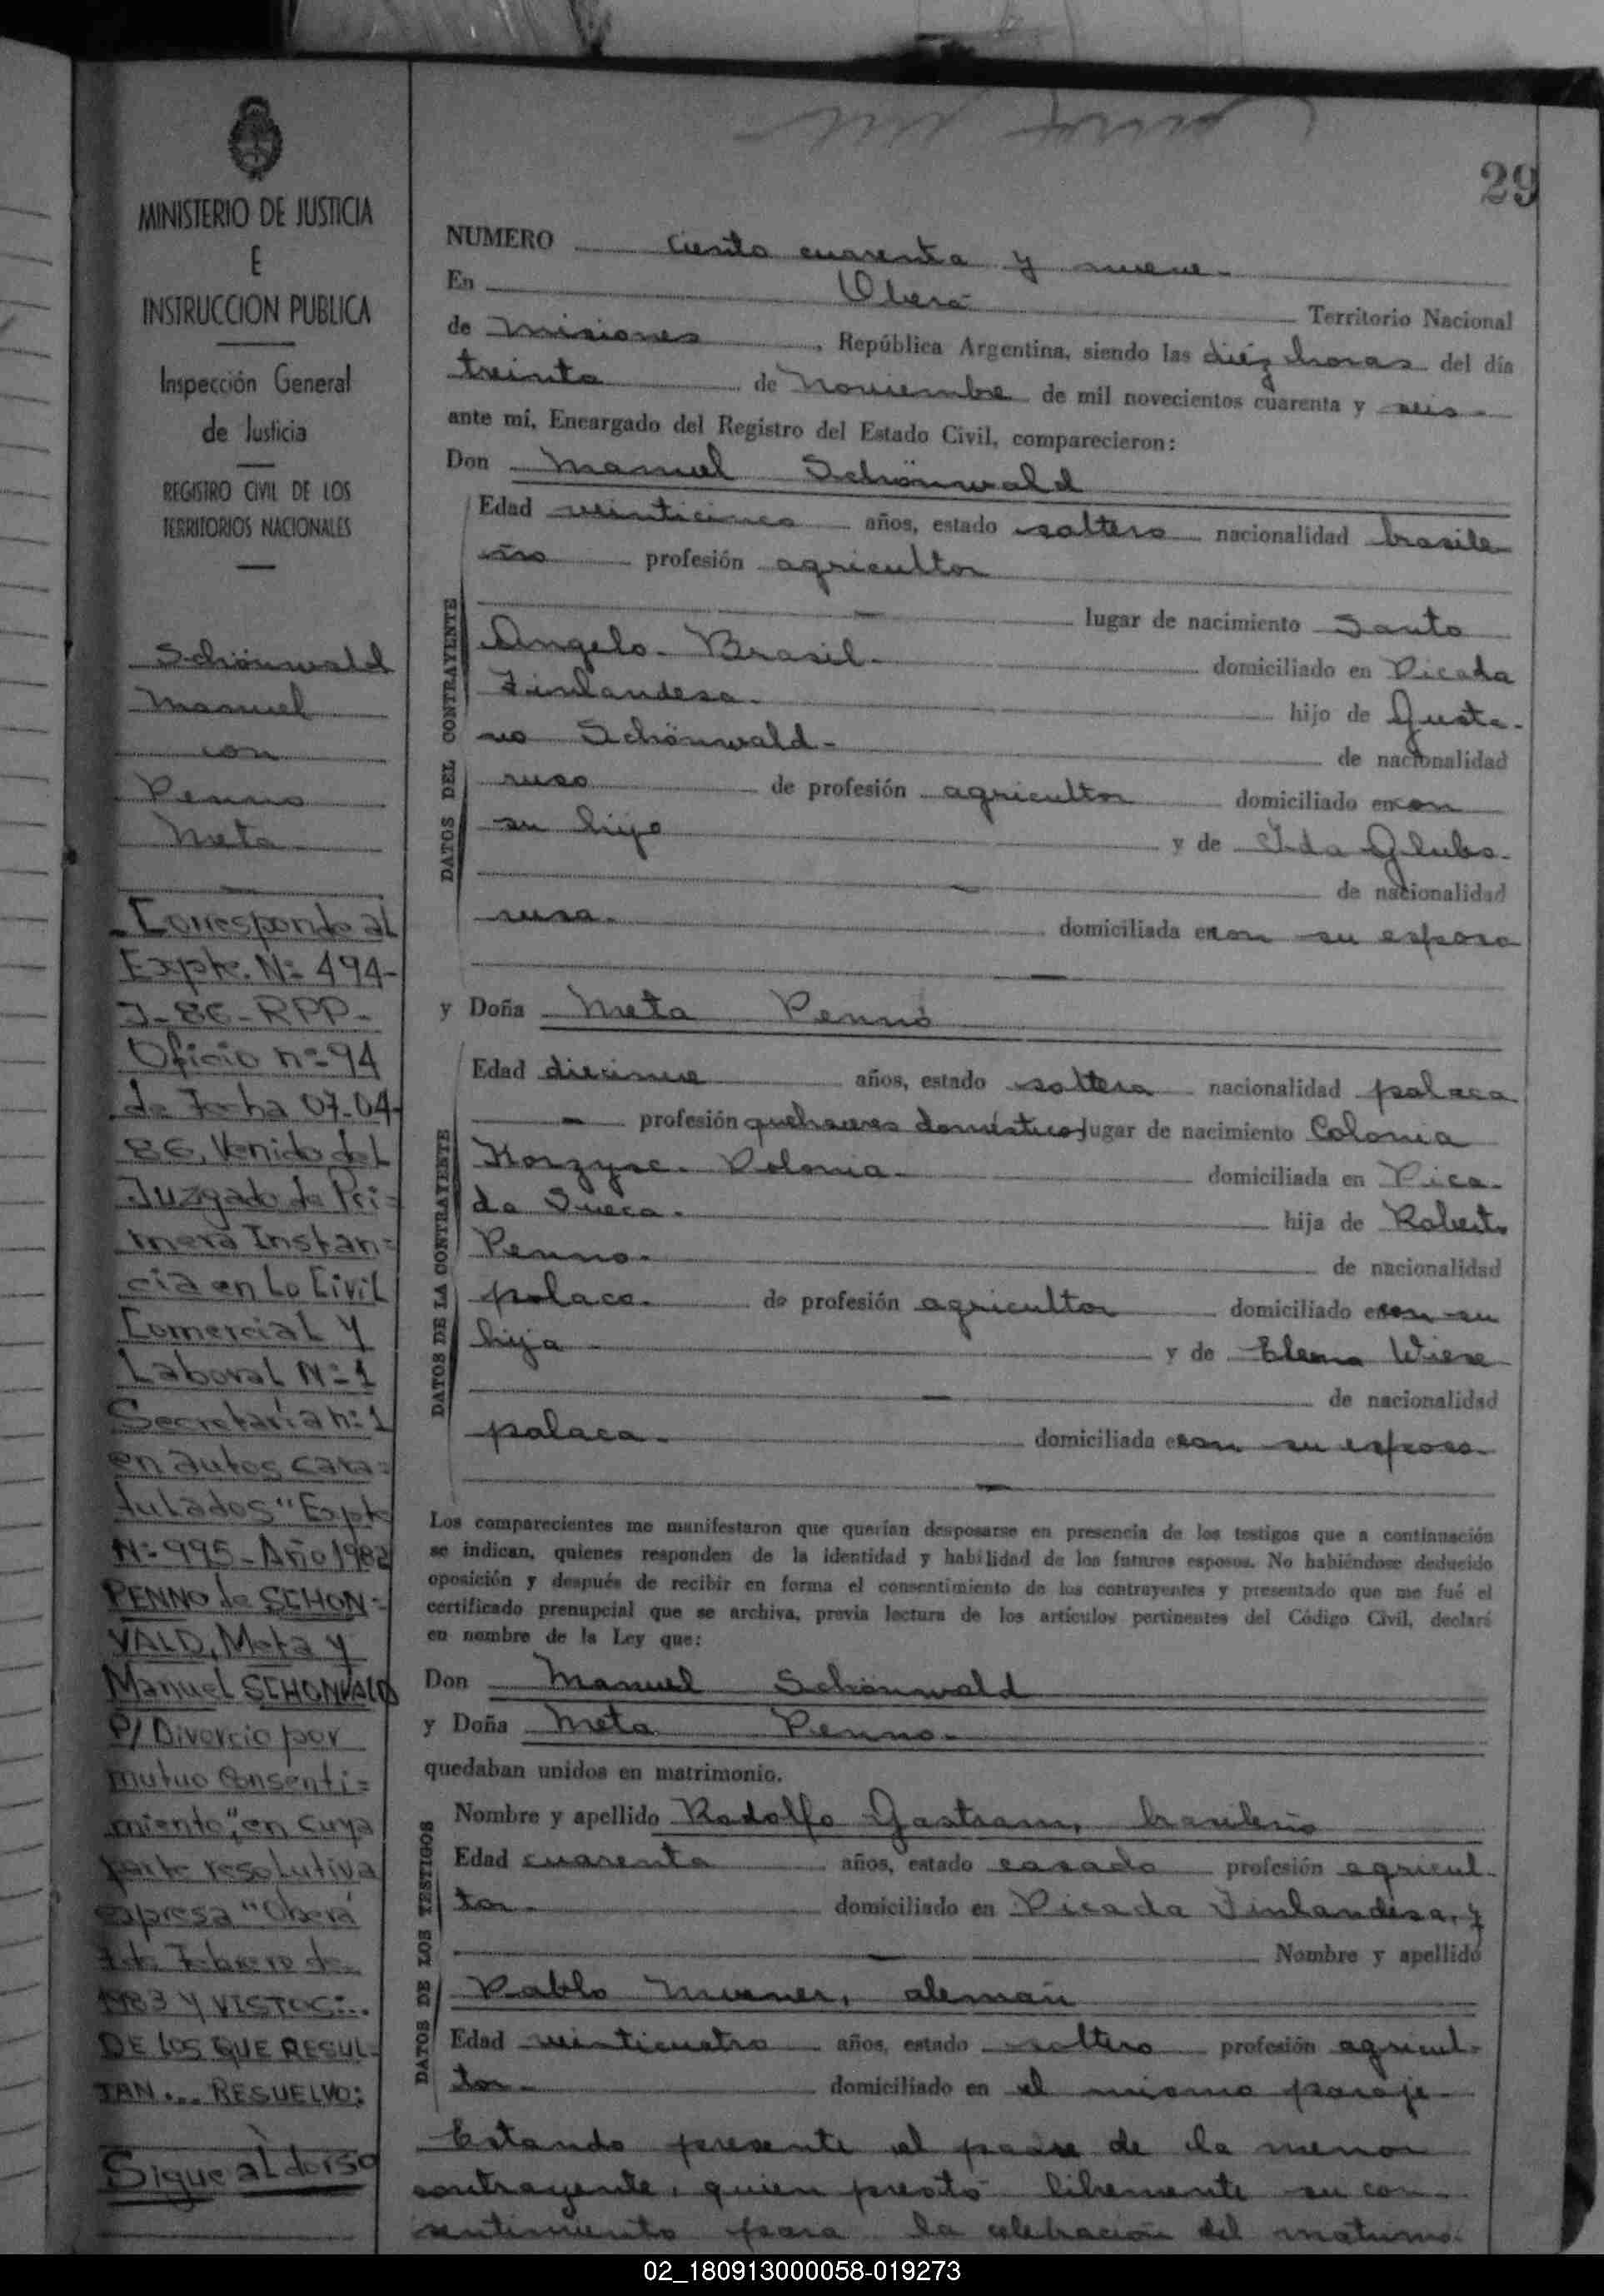 29
MINISTERIO DE JUSTICIA
E
INSTRUCCION PUBLICA
Inspección General
de Justicia
REGISTRO CIVIL DE LOS
TERRITORIOS NACIONALES
Schönwald
Manuel
con
Penno
Meta
Corresponde al
Expte. Nº 494-
J-86-RPP-
Oficio nº 94
de Fecha 07-04-
86, Venido del
Juzgado de Pri=
mera Instan=
cia en Lo Civil
Comercial y
Laboral Nº 1
Secretaría nº 1
en autos cara=
tulados "Expte
Nº 995-Año 1982
PENNO de SCHON=
VALD, Meta y
Manuel SCHONVALD
P/ Divorcio por
mutuo Consenti=
miento", en cuya
parte resolutiva
expresa "Oberá
de Febrero de
1983 Y VISTOS:..
DE LOS QUE RESUL=
TAN... RESUELVO:
Sigue al dorso
NUMERO ciento cuarenta y nueve-
En Oberá Territorio Nacional
de Misiones, República Argentina, siendo las diéz horas del día
treinta de Noviembre de mil novecientos cuarenta y seis-
ante mí, Encargado del Registro del Estado Civil, comparecieron:
Don Manuel Schönwald
DATOS DEL CONTRAYENTE
Edad veinticinco años, estado soltero nacionalidad brasile
ño profesión agricultor
lugar de nacimiento Santo
Angelo- Brasil- domiciliado en Picada
Finlandesa- hijo de Gusta-
vo Schönwald- de nacionalidad
ruso de profesión agricultor domiciliado en con
su hijo y de Ida
de nacionalidad
rusa- domiciliada en con su esposo
y Doña Meta Penno
DATOS DE LA CONTRAYENTE
Edad años, estado soltera nacionalidad polaca
profesión quehaceres domésticos lugar de nacimiento Colonia
Polonia- domiciliada en Pica-
da Sueca- hija de Roberto
Penno- de nacionalidad
polaco- de profesión agricultor domiciliado en con su
hija y de Elena Wiese
de nacionalidad
polaca- domiciliada en con su esposo-
Los comparecientes me manifestaron que querían desposarse en presencia de los testigos que a continuación
se indican, quienes responden de la identidad y habilidad de los futuros esposos. No habiéndose deducido
oposición y después de recibir en forma el consentimiento de los contrayentes y presentado que me fué el
certificado prenupcial que se archiva, previa lectura de los artículos pertinentes del Código Civil, declaré
en nombre de la Ley que:
Don Manuel Schönwald
y Doña Meta Penno-
quedaban unidos en matrimonio.
DATOS DE LOS TESTIGOS
Nombre y apellido Rodolfo brasileño
Edad cuarenta años, estado casado profesión agricul-
tor- domiciliado en Picada Finlandesa, y
Nombre y apellido
Pablo alemán
Edad veinticuatro años, estado soltero profesión agricul-
tor- domiciliado en el mismo paraje-
Estando presente el padre de la menor
contrayente, quien prestó libremente su con-
sentimiento para la celebración del matrimo-
02_180913000058-019273